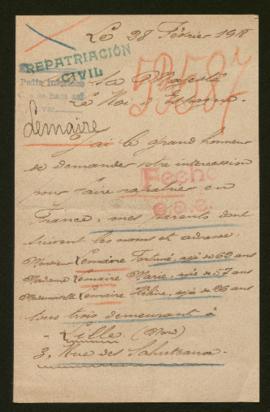 Le 28 Février 1918
REPATRIACIÓN
CIVIL
Sa Majesté
Le Roi d'Espagne
Lemaire
J'ai le grand honneur
de demander votre intercession
pour faire rapatrier en
Fecha
France, mes parents dont
suivent les noms et adresse
Monsieur Lemaire âgé de 60 ans
Madame Lemaire Marie, âgée de 57 ans
Mademoiselle Lemaire Hélène, âgée de 26 ans
tous trois demeurant à
Lille (Nord)
3, Rue des